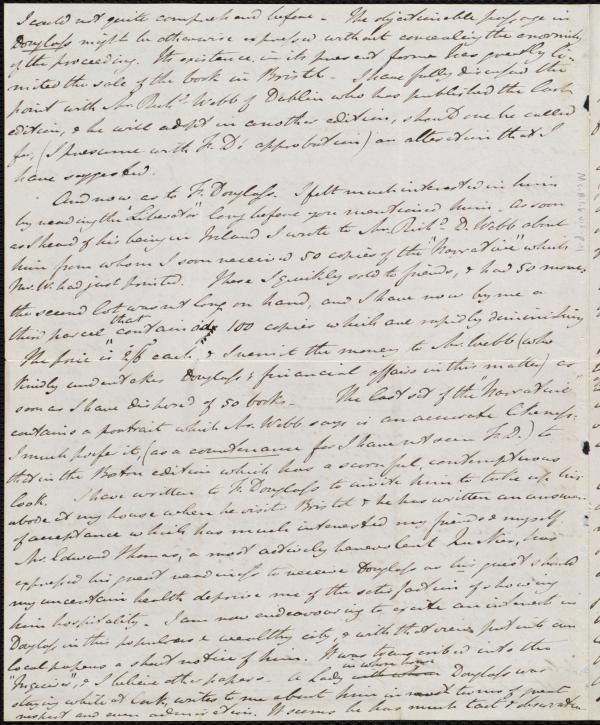 I could not quite comprehend before - The objectionable passage in
Douglass might be otherwise expressed without concealing the enormity
of the proceeding. Its existence, in its present form has greatly li-
mited the sale of the book in Bristol - I have fully discussed the
point with Mr. Richd. Webb of Dublin who has published the last
edition, & he will adopt in another edition, should one be called
for, (I presume with F. D's approbation) an alteration that I
have suggested.
And now, as to F. Douglass. I felt much interested in him
by reading the "Liberator" long before you mentioned him. As soon
as I heard of his being in Ireland I wrote to Mr. Richd. D. Webb about
him from whom I soon received 50 copies of the "Narrative" which
Mr. W. had just printed. These I quickly sold to friends, & had 50 more
the second lot was not long on hand, and I have now by me a
third parcel that contained 100 copies which are rapidly diminishing
The price is 2/6 each, & I remit the money to Mr. Webb (who
kindly undertakes Douglass's financial affairs in this matter) as
soon as I have disposed of 50 books - The last set of the "Narrative"
contains a portrait which Mr. Webb says is an accurate likeness.
I much prefer it, (as a countenance for I have not seen F. D.) to
that in the Boston edition which has a scornful, contemptuous
look. I have written to F. Douglass to invite him to take up his
abode at my house when he visits Bristol & he has written an answer
of acceptance which has much interested my friends & myself
Mr. Edward Thomas, a most actively benevolent Quaker, has
expressed his great readiness to receive Douglass as his guest should
my uncertain health deprive me of the satisfaction of showing
him hospitality. I am now endeavouring to excite an interest in
Douglass, in this populous & wealthy city, & with that view put into our
local papers a short notice of him. It was transcribed into the
"Inquirer", & I believe other papers - A Lady in whose house Douglass was
staying while at Cork, writes to me about him in terms of great
respect and even admiration. It seems he has much tact & discretion